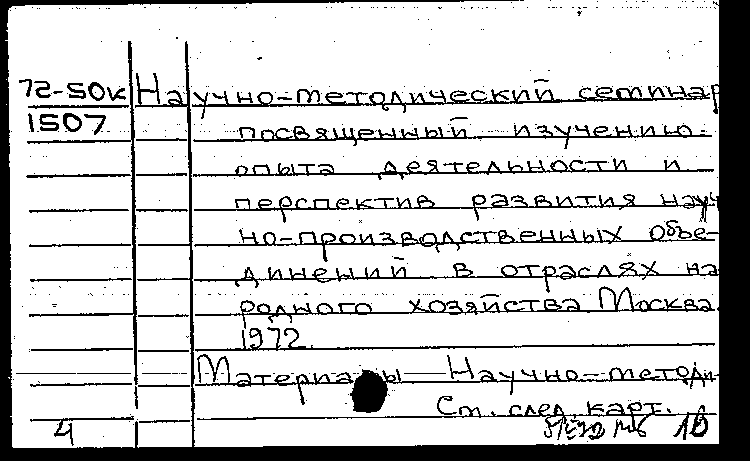 72-50к Научно-методический семинар
1507 посвященный изучению
опыта деятельности и
перспектив развития науч
но-производственных объе-
динений в отраслях на
родного хозяйства Москва
1972.
Материалы Научно-методи-
См. след. карт.
4 10